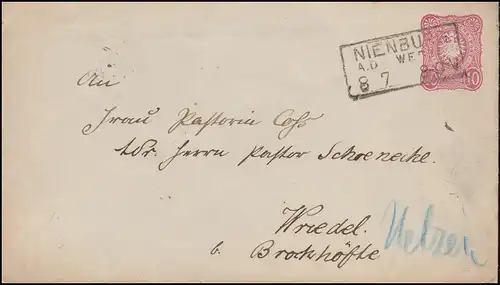 NIENBU
A.D. WES
8 7 8-9N
10
An
Frau Pastorin Cohs
Adr. Herrn Pastor Schoenecke.
Wriedel.
b. Brockhöfte
Uelzen